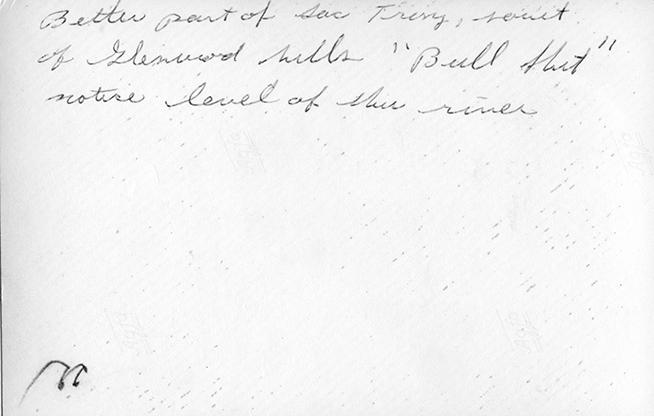 Better part of Sac Triny, sout
of Glenwood hills "Bull Shit"
notice level of the river